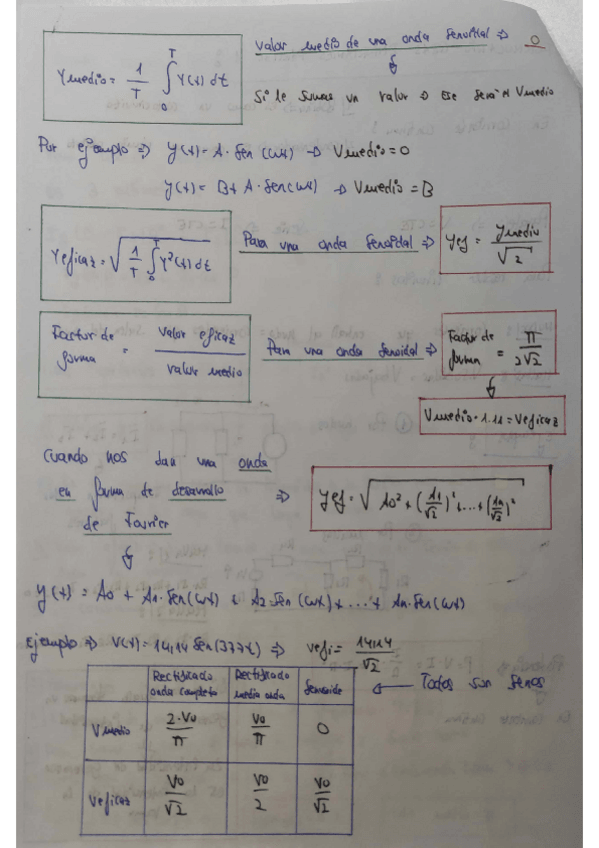 Valor medio de una onda senoidal ⇒ 0
Ymedio = 1/T ∫₀ᵀ Y(t) dt
Si le sumas un valor ⇒ ese será el Vmedio
Por ejemplo ⇒ y(t) = A · Sen (wt) → Vmedio = 0
y(t) = B + A · Sen(wt) → Vmedio = B
Yeficaz = √(1/T ∫₀ᵀ Y²(t) dt)
Para una onda senoidal ⇒ Yef = Ymedio/√2
Factor de forma = valor eficaz / valor medio
Para una onda senoidal ⇒ Factor de forma = π / 2√2
Vmedio · 1.11 = Veficaz
Cuando nos dan una onda
en forma de desarrollo ⇒ Yef = √(A0² + (A1/√2)² + ... + (An/√2)²)
de Fourier
y(t) = A0 + A1 · Sen(wt) + A2 · Sen (wt) + ... + An · Sen(wt)
Ejemplo ⇒ V(t) = 14,14 Sen(377t) ⇒ Vefi = 14,14/√2
Rectificado onda completa
Rectificado media onda
Senoide
← Todos son senos
Vmedio 2·Vo/π Vo/π 0
Veficaz Vo/√2 Vo/2 Vo/√2